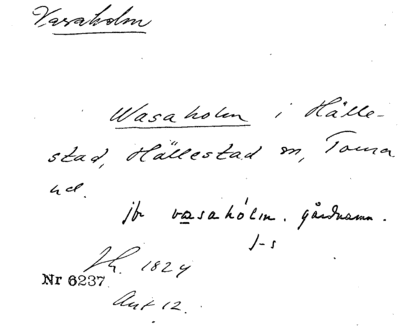 Vasaholm
Wasaholm i Hälle-
stad, Hällestad sn, Torna
hd.
jfr vasahólm. gårdnamn.
J-s
1824
Nr 6237
Ant 12.